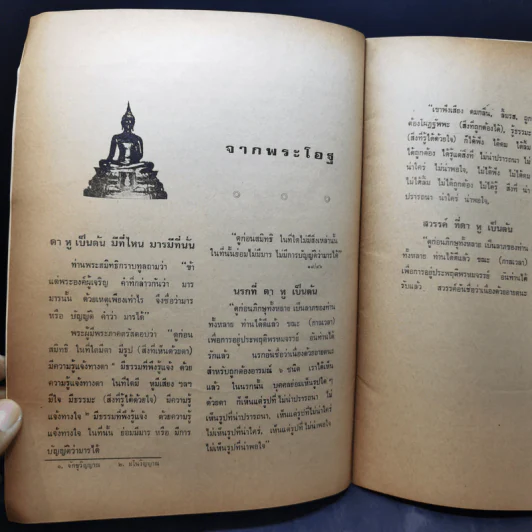 จากพระโอฐ
ตา หู เป็นต้น มีที่ไหน มารมีที่นั้น
ท่านพระสมิทธิกราบทูลถามว่า "ข้า
แต่พระองค์ผู้เจริญ คำที่กล่าวกันว่า มาร
มารนั้น ด้วยเหตุเพียงเท่าไร จึงชื่อว่ามาร
หรือ บัญญัติ คำว่า มารได้"
พระผู้มีพระภาคตรัสตอบว่า "ดูก่อน
สมิทธิ ในที่ใดมีตา มีรูป (สิ่งที่เห็นด้วยตา)
มีความรู้แจ้งทางตา มีธรรมที่พึงรู้แจ้ง ด้วย
ความรู้แจ้งทางตา ในที่ใดมี หูมีเสียง ฯลฯ
มีใจ มีธรรมะ (สิ่งที่รู้ได้ด้วยใจ) มีความรู้
แจ้งทางใจ มีธรรมที่พึงรู้แจ้ง ด้วยความรู้
แจ้งทางใจ ในที่นั้น ย่อมมีมาร หรือ มีการ
บัญญัติว่ามารได้
๑. จักขุวิญญาณ ๒. มโนวิญญาณ
"ดูก่อนสมิทธิ ในที่ใดไม่มีสิ่งเหล่านั้น
ในที่นั้นย่อมไม่มีมาร ไม่มีการบัญญัติว่ามารได้"
นรกที่ ตา หู เป็นต้น
"ดูก่อนภิกษุทั้งหลาย เป็นลาภของท่าน
ทั้งหลาย ท่านได้ดีแล้ว ขณะ (กาลเวลา)
เพื่อการอยู่ประพฤติพรหมจรรย์ อันท่านได้
รับแล้ว นรกอันชื่อว่าเนื่องด้วยอายตนะ
สำหรับถูกต้องอารมณ์ ๖ ชนิด เราได้เห็น
แล้ว ในนรกนั้น บุคคลย่อมเห็นรูปใด ๆ
ด้วยตา ก็เห็นแต่รูปที่ไม่น่าปรารถนา ไม่
เห็นรูปที่น่าปรารถนา, เห็นแต่รูปที่ไม่น่าใคร่
ไม่เห็นรูปที่น่าใคร่, เห็นแต่รูปที่ไม่น่าพอใจ
ไม่เห็นรูปที่น่าพอใจ"
"เขาฟังเสียง ดมกลิ่น, ลิ้มรส, ถูก
ต้องโผฏฐัพพะ (สิ่งที่ถูกต้องได้), รู้ธรรมะ
(สิ่งที่รู้ได้ด้วยใจ) ก็ได้ฟัง ได้ดม ได้ลิ้ม
ได้ถูกต้อง ได้รู้แต่สิ่งที่ ไม่น่าปรารถนา ไม่
น่าใคร่ ไม่น่าพอใจ, ไม่ได้ฟัง ไม่ได้ดม
ไม่ได้ลิ้ม ไม่ได้ถูกต้อง ไม่ได้รู้ สิ่งที่ น่า
ปรารถนา น่าใคร่ น่าพอใจ"
สวรรค์ ที่ตา หู เป็นต้น
"ดูก่อนภิกษุทั้งหลาย เป็นลาภของท่าน
ทั้งหลาย ท่านได้ดีแล้ว ขณะ (กาลเวลา)
เพื่อการอยู่ประพฤติพรหมจรรย์ อันท่านได้
รับแล้ว สวรรค์อันชื่อว่าเนื่องด้วยอายตนะ